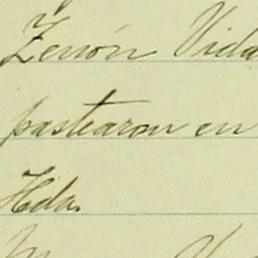 Zenón Vida
pastearon en
Hda.